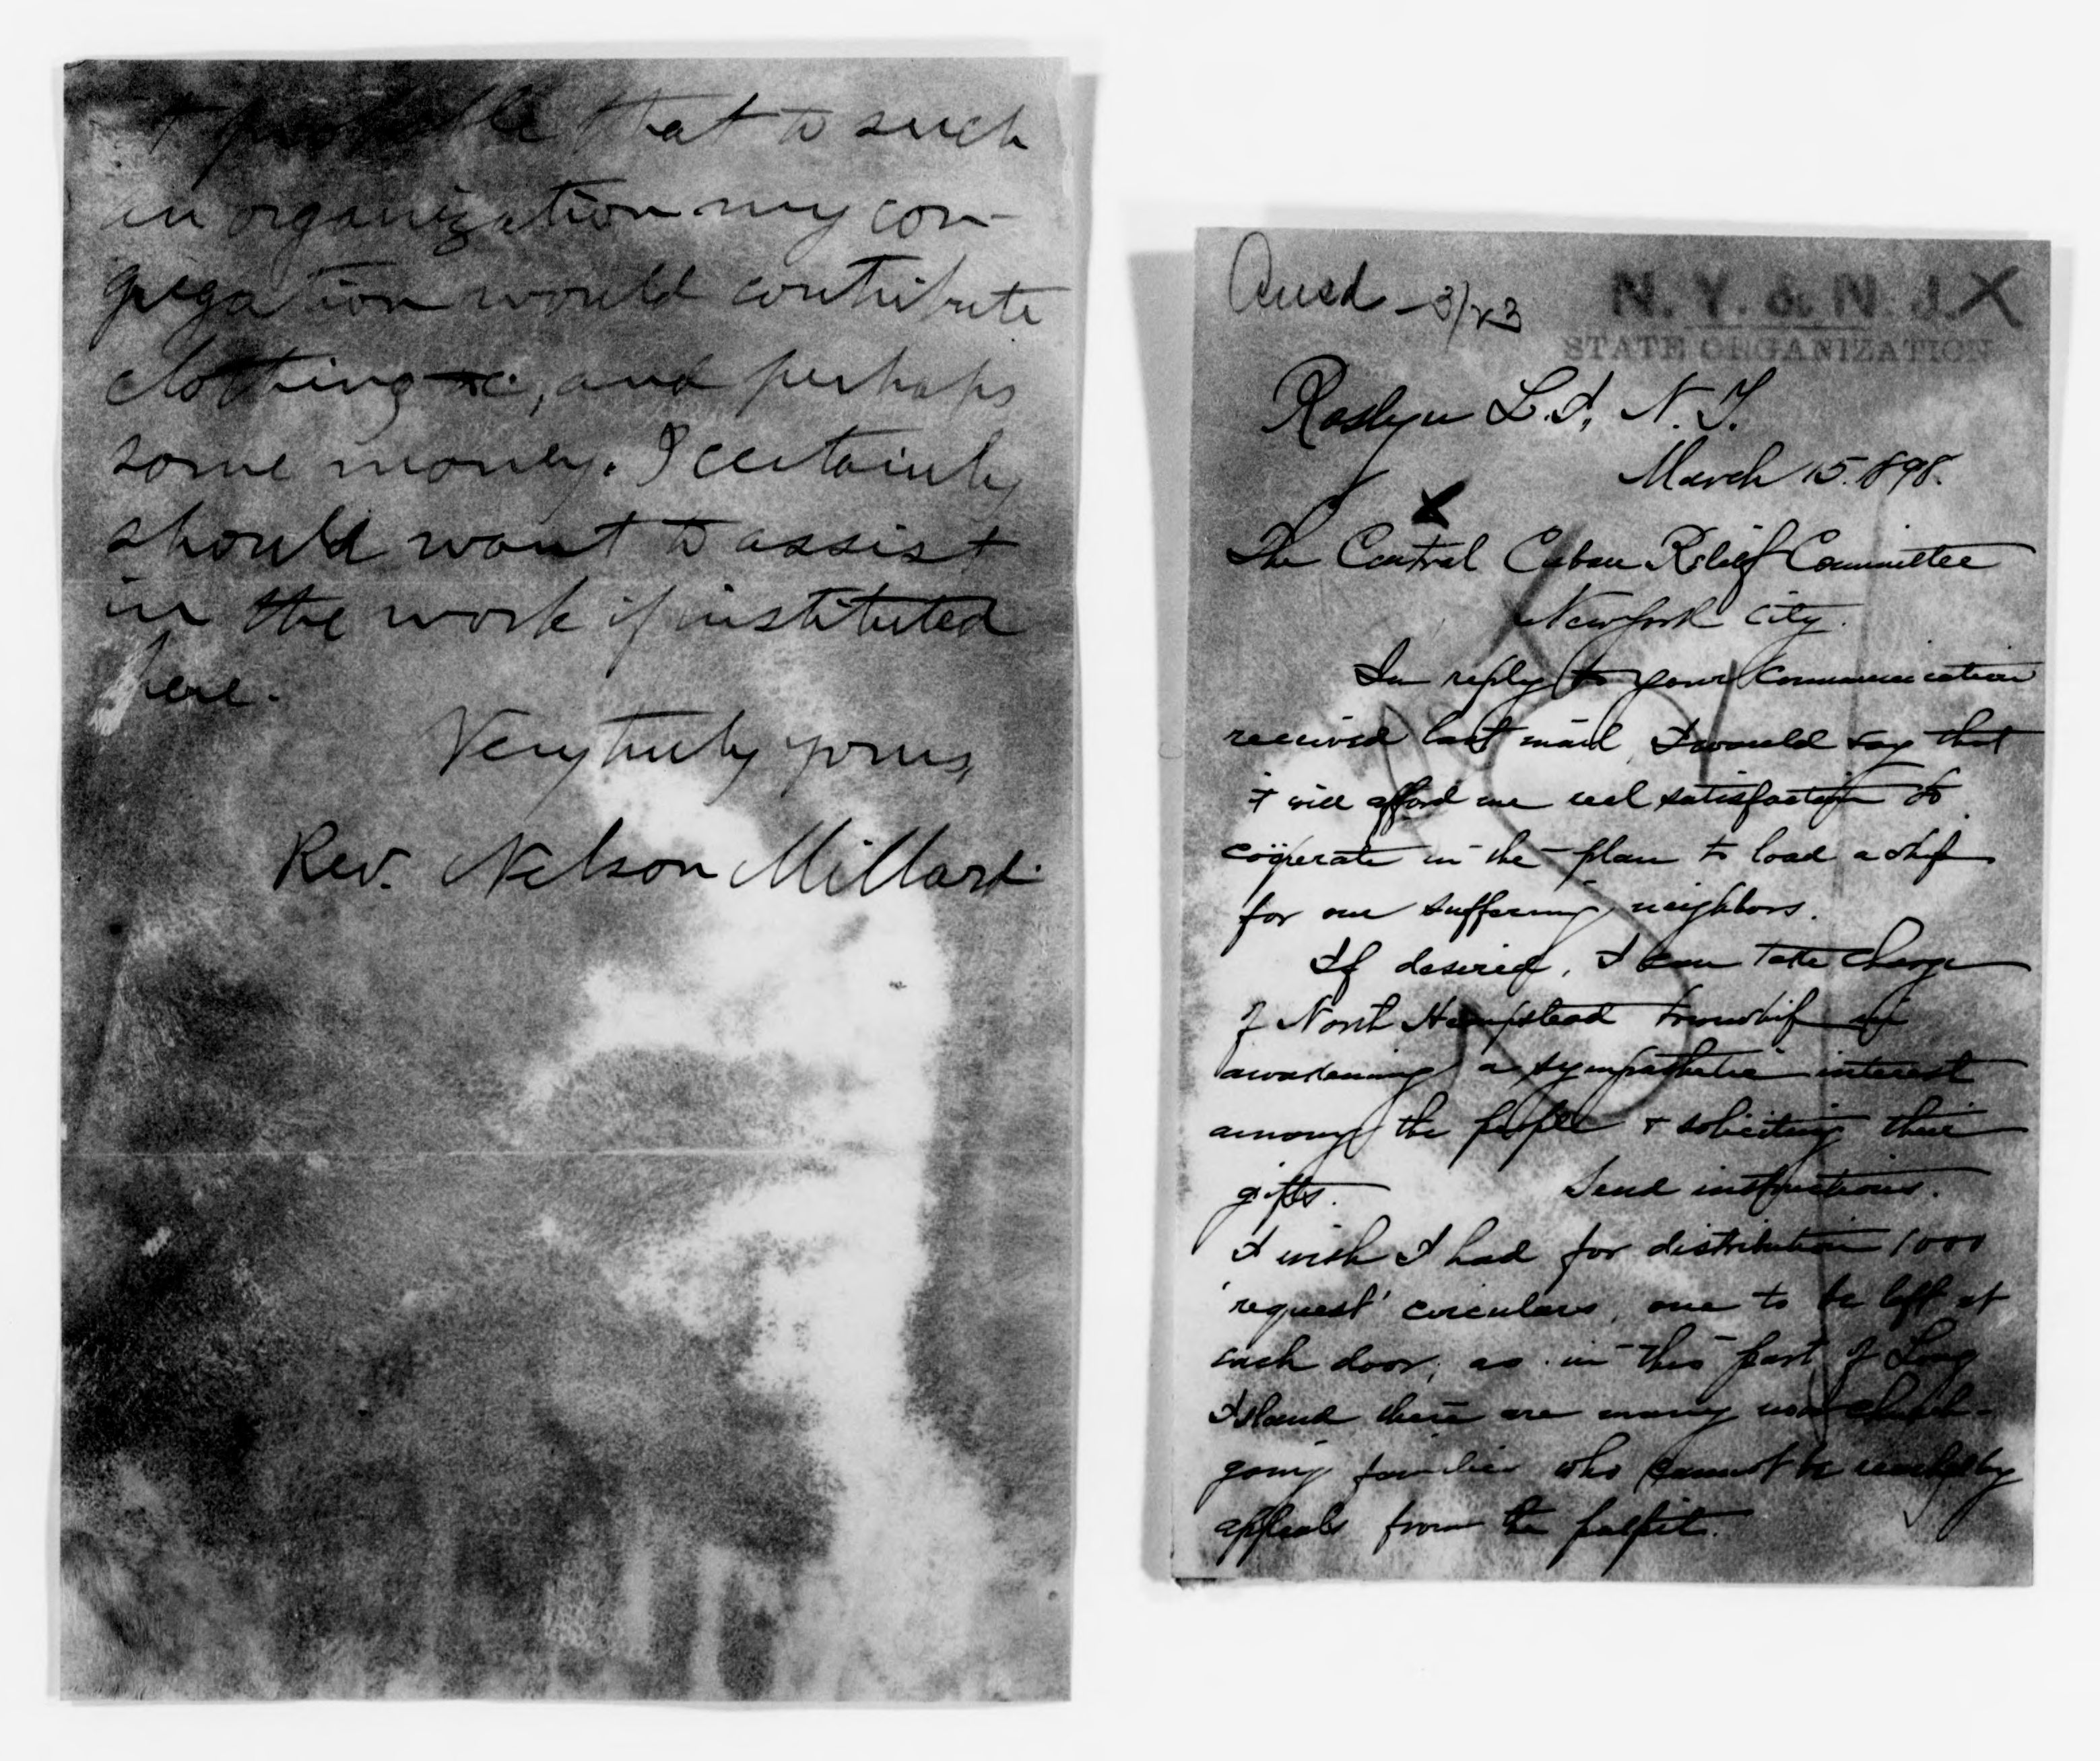 it probable that to such
an organization my con-
gregation would contribute
clothing &c, and perhaps
some money. I certainly
should want to assist
in the work if instituted
here.
Very truly yours,
Rev. Nelson Millard.
Ansd - 3/23
N. Y. & N. J. X
STATE ORGANIZATION
Roslyn L.I, N.Y.
March 15. 898.
X
The Central Cuban Relief Committee
New York City.
In reply to your communication
received last mail, I would say that
it will afford me real satisfaction to
coöperate in the plan to load a ship
for our suffering neighbors.
If desired, I can take charge
of North Hempstead township in
awakening a sympathetic interest
among the people & soliciting their
gifts. Send instructions.
I wish I had for distribution 1000
'request' circulars, one to be left at
each door, as in this part of Long
Island there are many non church-
going families who cannot be reached by
appeals from the pulpit.